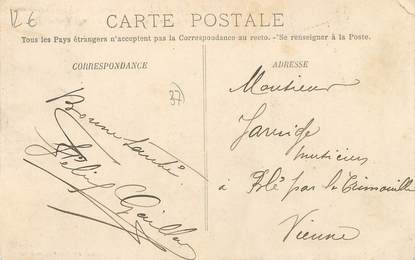 12€
CARTE POSTALE
Tous les Pays étrangers n'acceptent pas la Correspondance au recto. - Se renseigner à la Poste.
CORRESPONDANCE
ADRESSE
37
Bonne santé
Félix
Monsieur
Jarrige
à par la Trimouille
Vienne